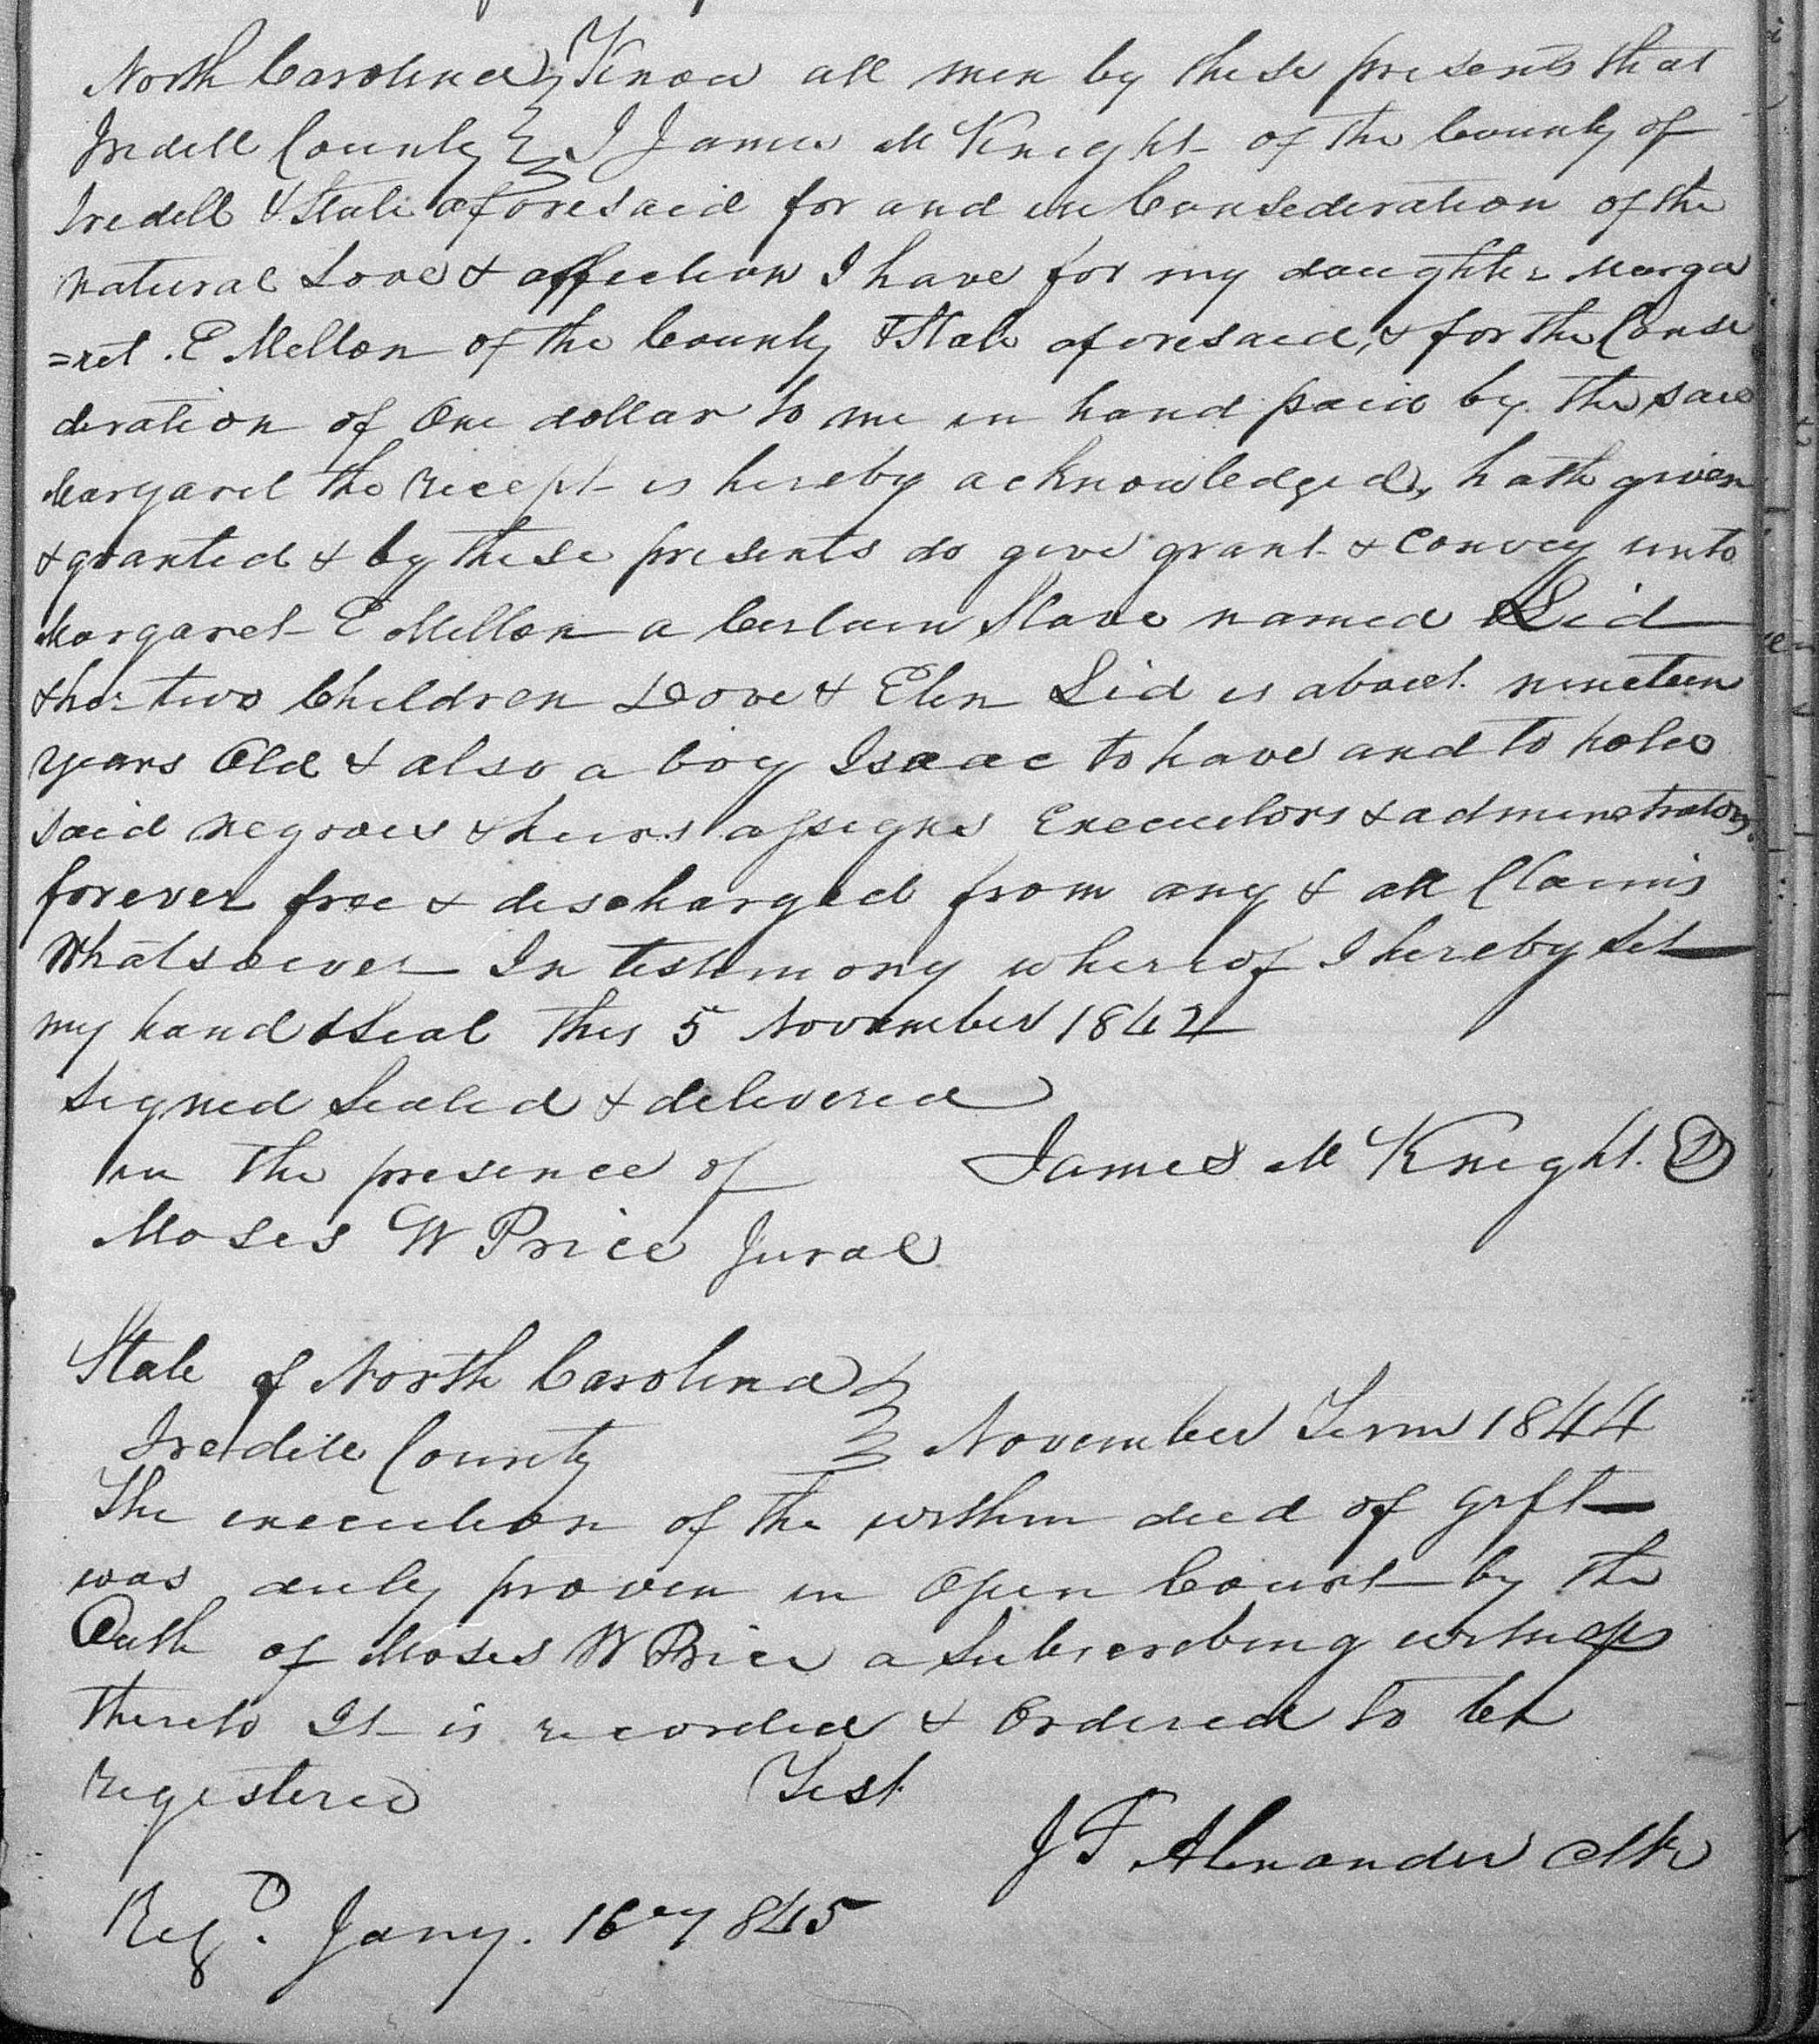 North Carolina } Know all men by these presents that
Iredell County } I James McKnight of the County of
Iredell & State aforesaid for and in Consederation of the
natural Love & affection I have for my daughter Marga
=ret . E Mellon of the County & State aforesaid, & for the Conse
deration of One dollar to me in hand paid by the said
Margaret the recept is hereby acknowledged, hath given
& granted & by these presents do give grant & Convey unto
Margaret E Mellon a Certain Slave named Sid
& her two Children Dove & Elen Sid is about nineteen
years Old & also a boy Isaac to have and to hold
said negroes & heirs assigns Executors & administrators
forever free & discharged from any & all Claims
Whatsoever In testimony whereof I hereby Set
my hand & Seal this 5 November 1842
Signed Sealed & delivered
in the presence of James McKnight.
Moses W Price Jurat
State of North Carolina }
Iredell County } November Term 1844
The execution of the within deed of gift
was duly proven in Open Court by the
Oath of Moses W Price a Subscribing witness
thereto It is recorded & Ordered to be
registered Test
J F Alexander Clk
Regd. Jany. 16 1845